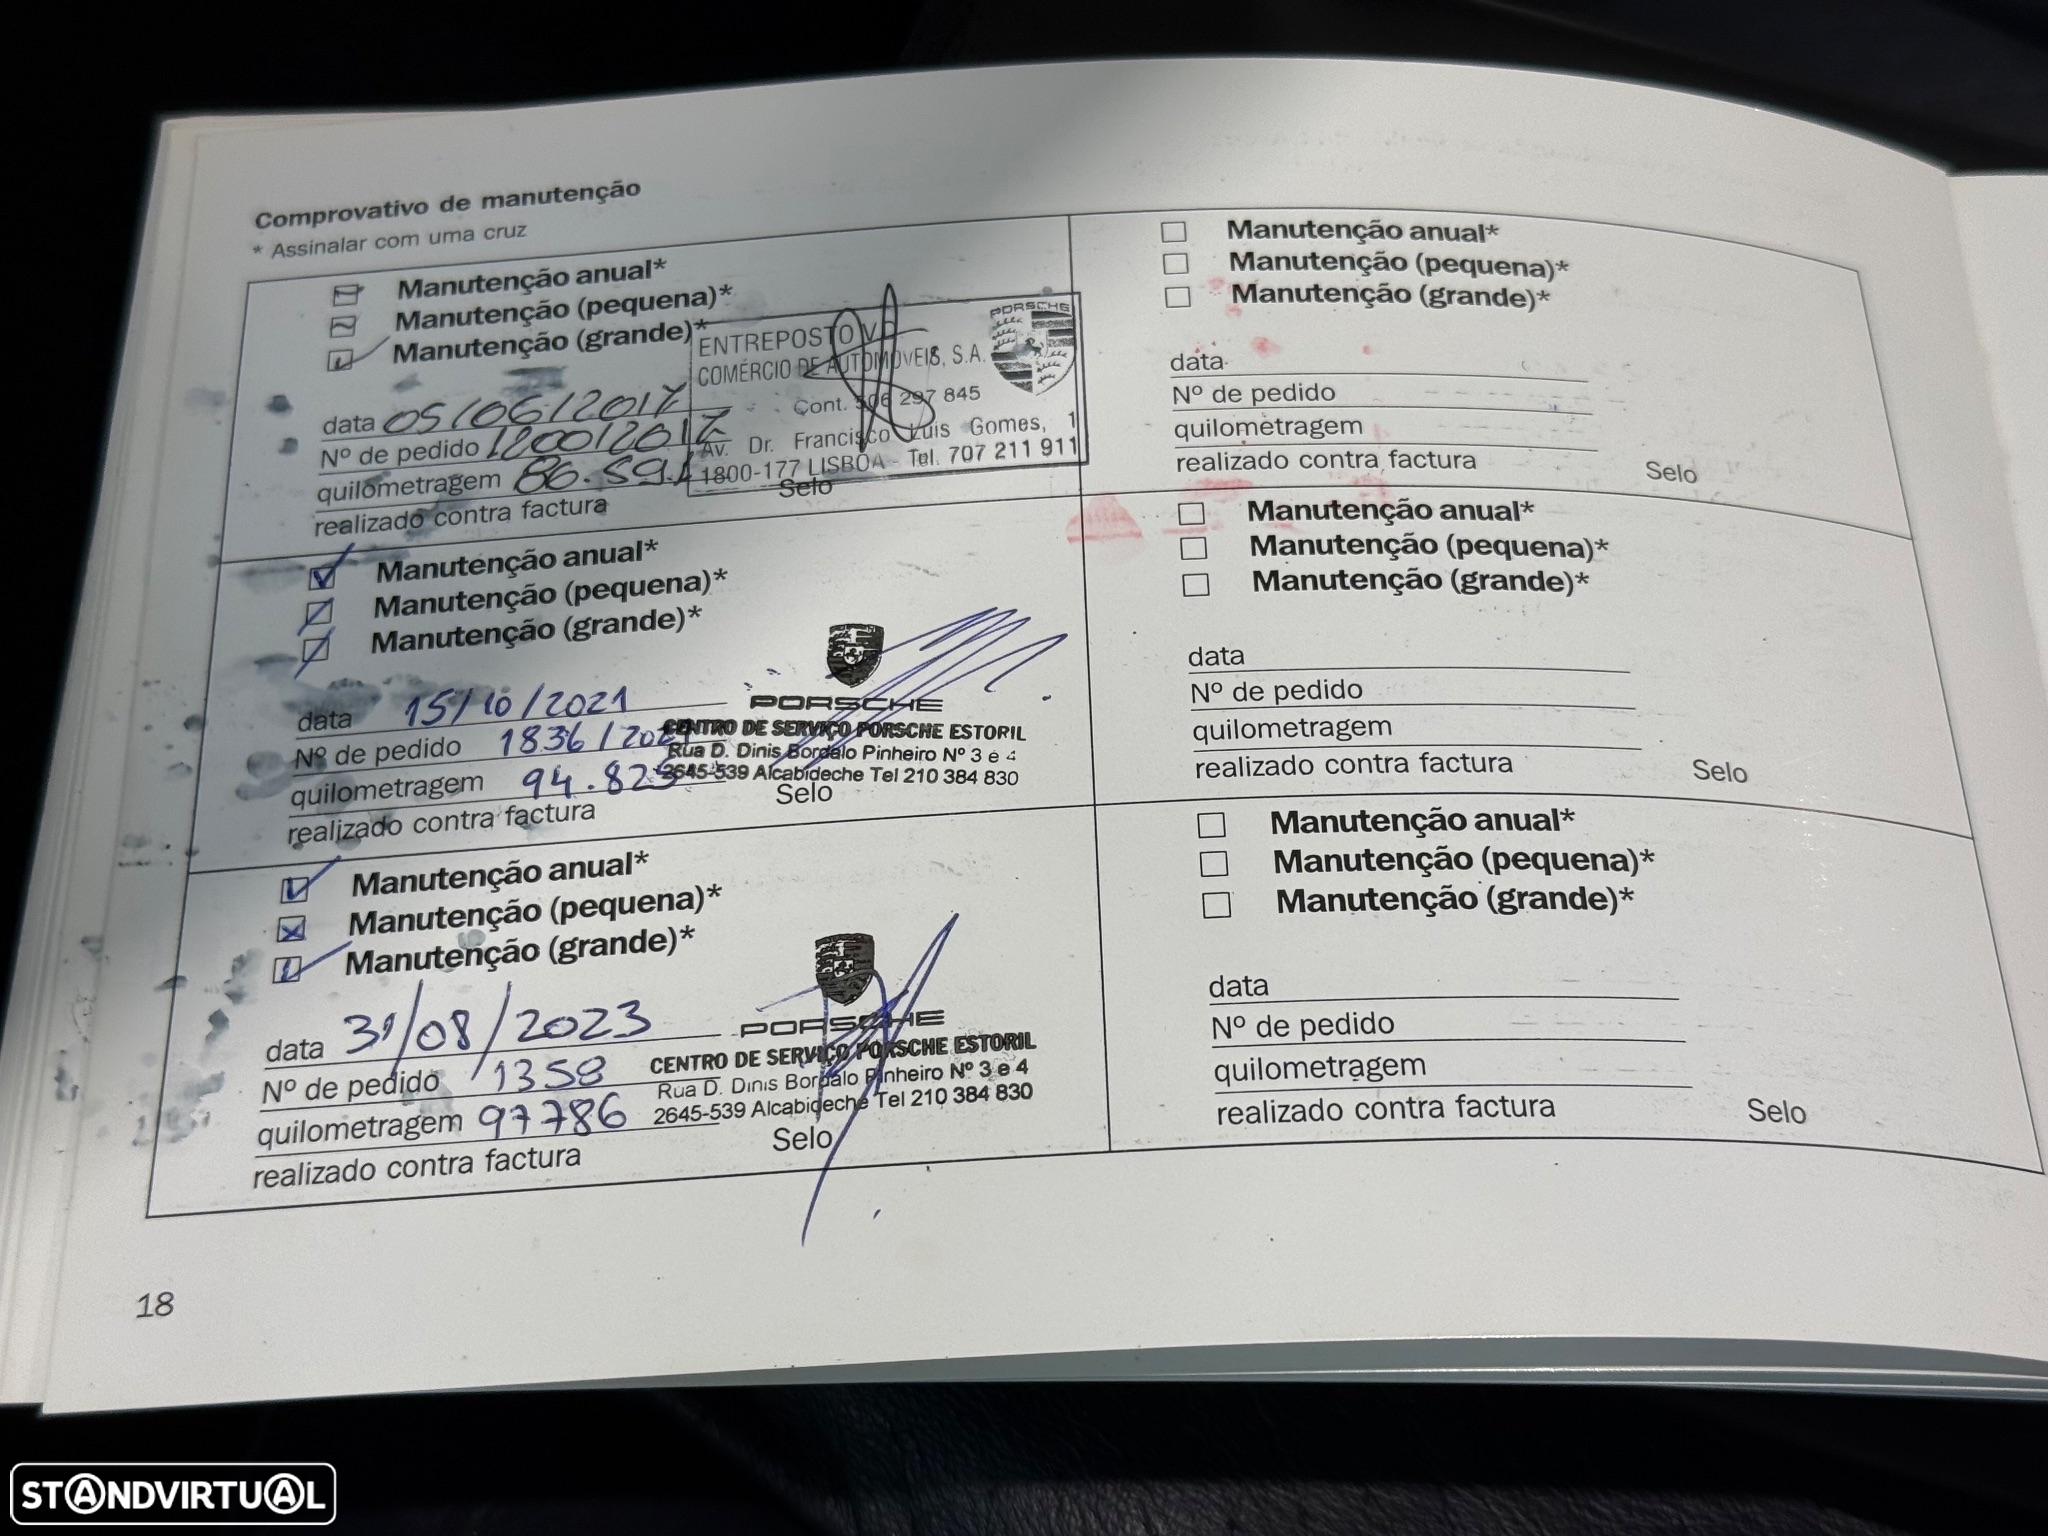 Comprovativo de manutenção
* Assinalar com uma cruz
Manutenção anual*
Manutenção (pequena)*
Manutenção (grande)*
ENTREPOSTO V.P.
COMÉRCIO DE AUTOMOVEIS, S.A.
PORSCHE
Cont. 506 297 845
Av. Dr. Francisco Luis Gomes, 1
1800-177 LISBOA - Tel. 707 211 911
data 05/06/2017
Nº de pedido 1200/2017
quilometragem 86.591
realizado contra factura
Selo
Manutenção anual*
Manutenção (pequena)*
Manutenção (grande)*
PORSCHE
CENTRO DE SERVIÇO PORSCHE ESTORIL
Rua D. Dinis Bordalo Pinheiro Nº 3 e 4
2645-539 Alcabideche Tel 210 384 830
data 15/10/2021
Nº de pedido 1836/2021
quilometragem 94.825
realizado contra factura
Selo
Manutenção anual*
Manutenção (pequena)*
Manutenção (grande)*
PORSCHE
CENTRO DE SERVIÇO PORSCHE ESTORIL
Rua D. Dinis Bordalo Pinheiro Nº 3 e 4
2645-539 Alcabideche Tel 210 384 830
data 31/08/2023
Nº de pedido 1358
quilometragem 97786
realizado contra factura
Selo
Manutenção anual*
Manutenção (pequena)*
Manutenção (grande)*
data
Nº de pedido
quilometragem
realizado contra factura
Selo
Manutenção anual*
Manutenção (pequena)*
Manutenção (grande)*
data
Nº de pedido
quilometragem
realizado contra factura
Selo
Manutenção anual*
Manutenção (pequena)*
Manutenção (grande)*
data
Nº de pedido
quilometragem
realizado contra factura
Selo
18
STANDVIRTUAL